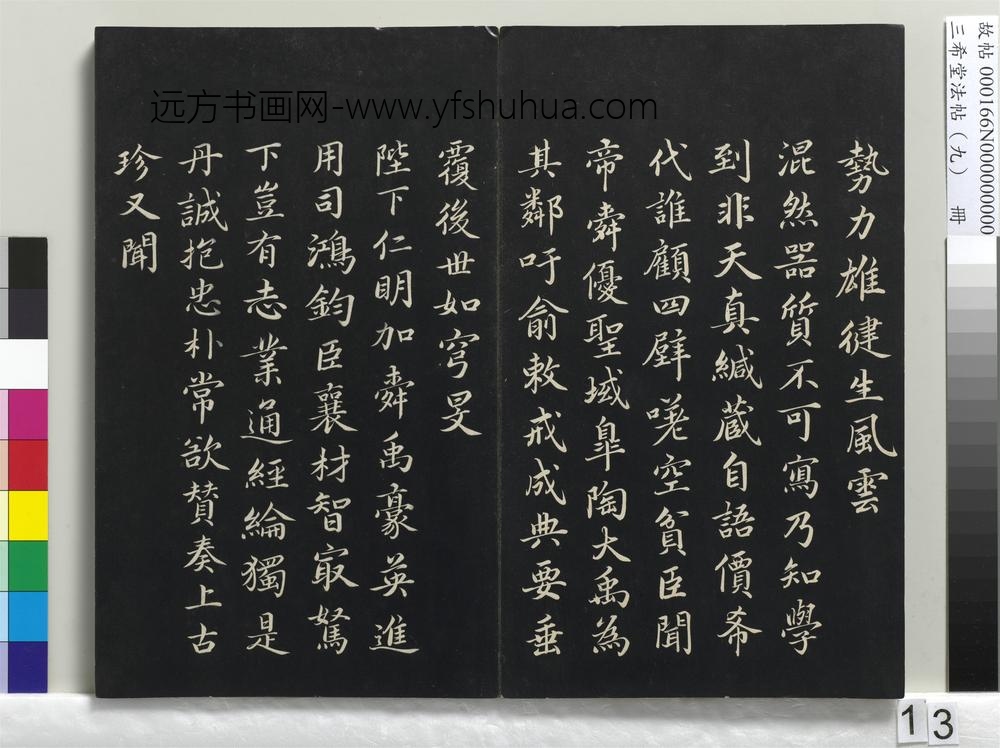 远方书画网-www.yfshuhua.com
勢力雄健生風雲
混然器質不可寫乃知學
到非天真緘蔵自語價希
代誰顧四壁嗟空貧臣聞
帝舜優聖域臯陶大禹為
其鄰吁俞敕戒成典要垂
覆後世如穹旻
陛下仁明加舜禹豪英進
用司鴻鈞臣襄材智最駑
下豈有志業通經綸獨是
丹誠抱忠朴常欲賛奏上古
珍又聞
故帖 000166N000000000
三希堂法帖（九） 冊
13